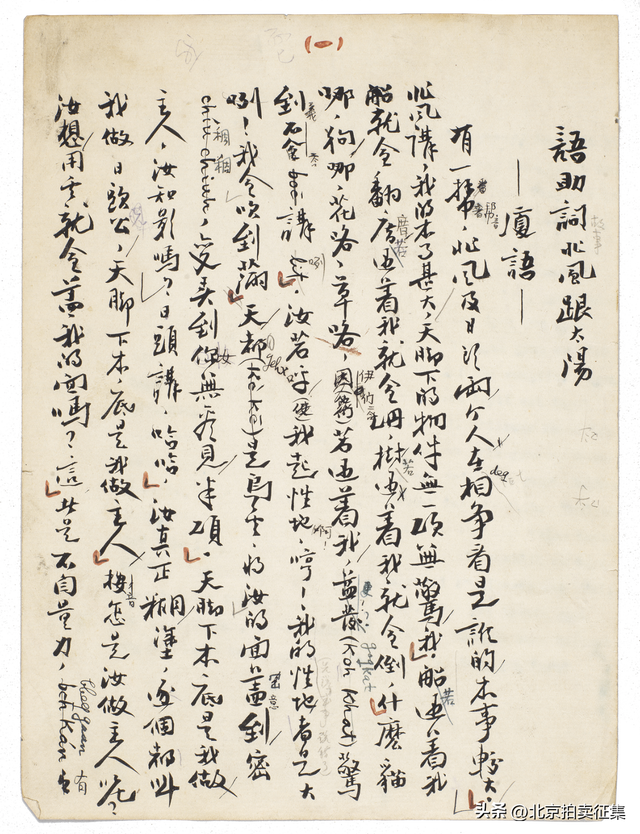 (一)
語助詞北風跟太陽
—廈語—
有一擺，北風及日頭兩个人在相爭看是誰的本事較大
北風講，我的本事甚大，天脚下的物件無一項無驚我，船遇着我
船就會翻，厝遇着我就會冊，樹遇着我，就會倒，什麼貓
哪，狗哪，花咯，草咯，若遇着我，益發(koh khat)驚
到 講，汝若乎我起性地，哼！我的性地若是大
咧！我會吹到滿天都是烏雲，將汝的面蓋到密
變弄到你無看見半項，天脚下本底是我做
主人，汝和影嗎？日頭講，哈哈，汝真正糊塗，逐個都叫
我做日頭公，天脚下本底是我做主人，按怎是汝做主人呢？
汝想用雲就會蓋我的面嗎？這此是不自量力，
头条 @北京拍卖征集